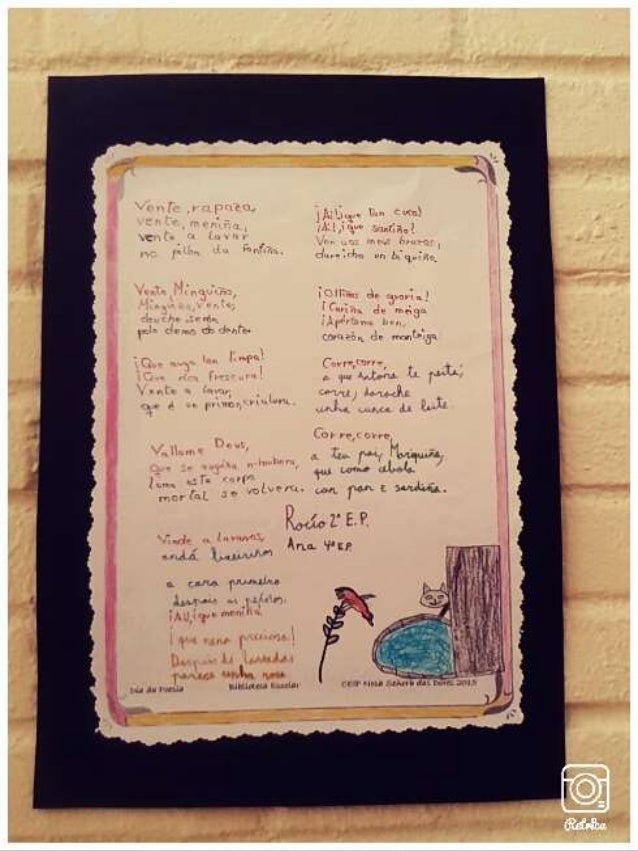 Vente, rapaza,
vente, meniña,
vente a lavar
no pilón da fontiña.
Vente, Minguiños,
Minguiños, vente,
do demo do dente.
¡Que auga tan limpa!
¡Que rica frescura!
Vente a lavar,
que é un primor, criatura.
Vállame Deus,
que se
como este corpo
mortal se volvera.
Vinde a lavarvos,
andá lixeiriños
a cara primeiro
despois os peíños.
¡Ai, ¡que meniña
¡que nena preciosa!
Despois de lavada
parece unha rosa.
¡Ai! ¡que tan cuco!
¡Ai!, ¡que santiño!
Ven aos meus brazos,
dareiche un biquiño.
¡Olliños de groria!
¡Cariña de meiga
¡Apértame ben,
corazón de manteiga
Corre, corre,
a que Antona te peite;
corre, darache
unha cunca de leite.
Corre, corre,
a teu pai, Marquiña,
que come cebola
con pan e sardiña.
Rocío 2º E.P.
Ana 4º E.P.
Día da Poesía
Biblioteca Escolar
CEIP Nosa Señora das Dores 2015
Retrica